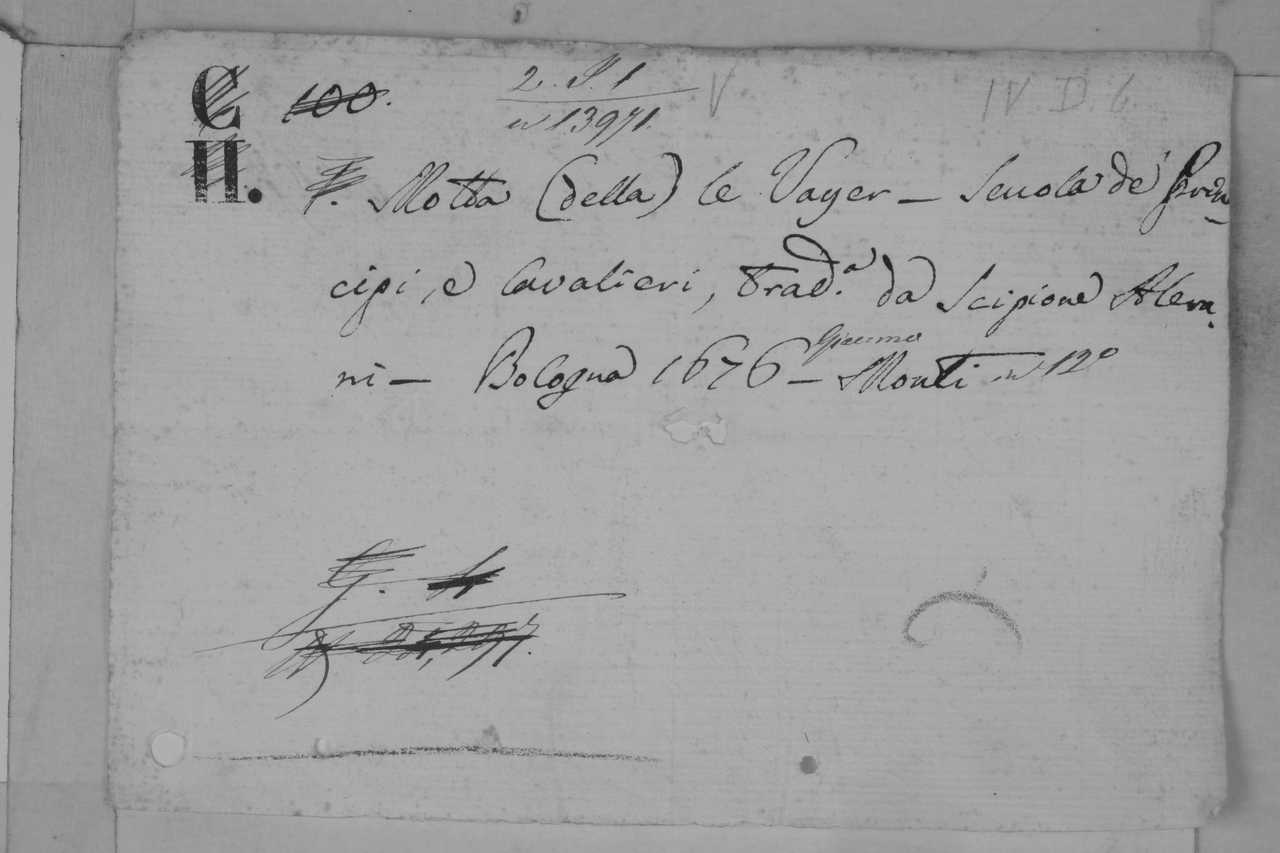 C 100. 2. I. 1 V IV D. 6.
H. n 13971.
F. Motta (della) le Vayer – Scuola de' Prin-
cipi, e Cavalieri, trad.ª da Scipione Alera-
ni – Bologna 1676 – Giacomo Monti in 12º
G.